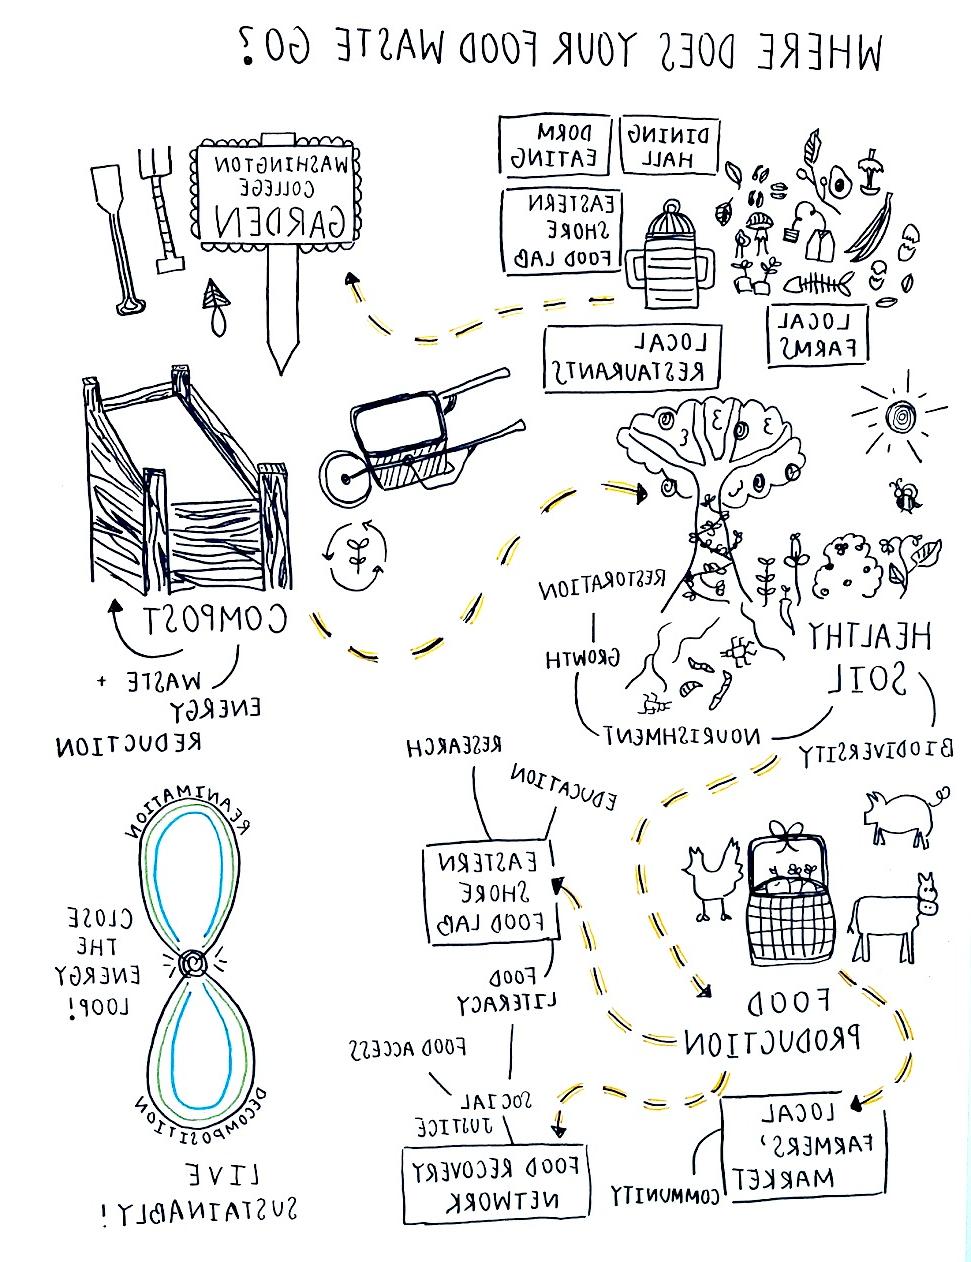 WHERE DOES YOUR FOOD WASTE GO?
DINING
HALL
DORM
EATING
EASTERN
SHORE
FOOD LAB
LOCAL
FARMS
LOCAL
RESTAURANTS
WASHINGTON
COLLEGE
GARDEN
COMPOST
WASTE +
ENERGY
REDUCTION
HEALTHY
SOIL
BIODIVERSITY
NOURISHMENT
GROWTH
RESTORATION
FOOD
PRODUCTION
EASTERN
SHORE
FOOD LAB
RESEARCH
EDUCATION
FOOD
LITERACY
SOCIAL
JUSTICE
FOOD ACCESS
FOOD RECOVERY
NETWORK
LOCAL
FARMERS'
MARKET
COMMUNITY
REANIMATION
CLOSE
THE
ENERGY
LOOP!
DECOMPOSITION
LIVE
SUSTAINABLY!